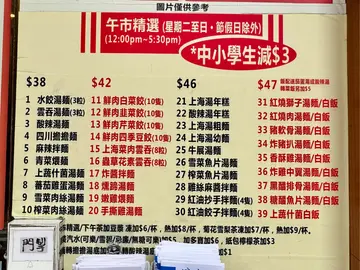 圖片僅供參考
午市精選 (星期二至日，節假日除外)
(12:00pm~5:30pm)
*中小學生減$3
$38
1 水餃湯麵(3粒)
2 雲吞湯麵(3粒)
3 酸辣湯麵
4 四川擔擔麵
5 麻辣拌麵
6 青菜煨麵
7 上蔬什菌湯麵
8 番茄雞蛋湯麵
9 雪菜肉絲湯麵
10 榨菜肉絲湯麵
$42
11 鮮肉白菜餃(10隻)
12 鮮肉韭菜餃(10隻)
13 鮮肉芹菜餃(10隻)
14 鮮肉四季豆餃(10隻)
15 上海菜肉雲吞(8粒)
16 蟲草花素雲吞(8粒)
17 炸醬拌麵
18 燻蹄湯麵
19 嫩雞煨麵
20 手撕雞湯麵
$46
21 上海湯年糕
22 酸辣湯年糕
23 上海湯粗麵
24 上海炒麵
25 牛展湯麵
26 雪菜魚片湯麵
27 榨菜魚片湯麵
28 雞絲麻醬拌麵
29 紅油抄手拌麵(4粒)
30 紅油餃子拌麵(4隻)
$47
31 紅燒獅子湯麵/白飯
32 紅燒肉湯麵/白飯
33 豬軟骨湯麵/白飯
34 炸豬扒湯麵/白飯
35 香酥雞湯麵/白飯
36 炸雞中翼湯麵/白飯
37 黑醋排骨湯麵/白飯
38 糖醋魚片湯麵/白飯
39 上素什菌紅炆白飯
精選/下午茶加豆漿 凍加$6/杯，熱加$8/杯，菊花雪梨茶凍加$7/杯，熱加$9/杯.